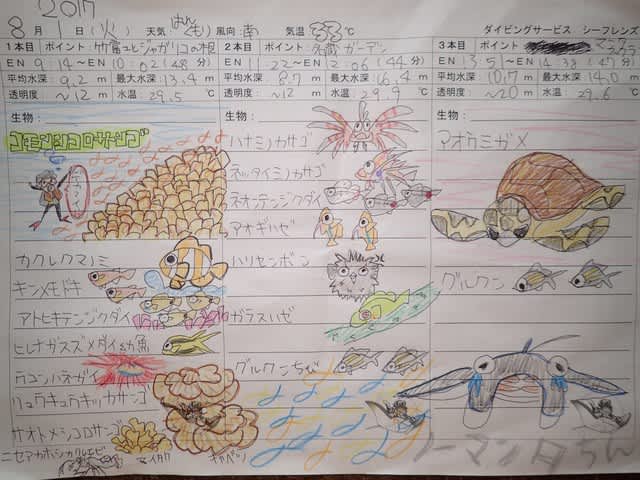 2017
8月1日(火) 天気(はれ/くもり) 風向:南 気温 ℃ ダイビングサービス シーフレンズ
1本目 ポイント 竹富ユビとジャガイコの根
EN 9:14~EN 10:02(48分)
平均水深 9.2 m 最大水深 13.4 m
透明度 ~12 m 水温: 29.5 ℃
生物:
コモンシコロサンゴ
カクレクマノミ
キンメモドキ
アトヒキテンジクダイ
ヒレナガスズメダイ幼魚
ウコンハネガイ
リュウキュウキッカサンゴ
サオトメシコロサンゴ
ニセアカホシカクレエビ
マイタケ
キャベツ
2本目 ポイント ガーデン
EN 11:22~EN 12:06(44分)
平均水深 8.7 m 最大水深 16.4 m
透明度 ~12 m 水温: 29.9 ℃
生物:
ハナミノカサゴ
ネッタイミノカサゴ
ネオンテンジクダイ
アオギハゼ
ハリセンボン
ガラスハゼ
グルクンちび
3本目 ポイント
EN 13:51~EN 14:38(47分)
平均水深 10.7 m 最大水深 14.0 m
透明度 ~20 m 水温: 29.6 ℃
生物:
アオウミガメ
グルクン
ノーマンタちん